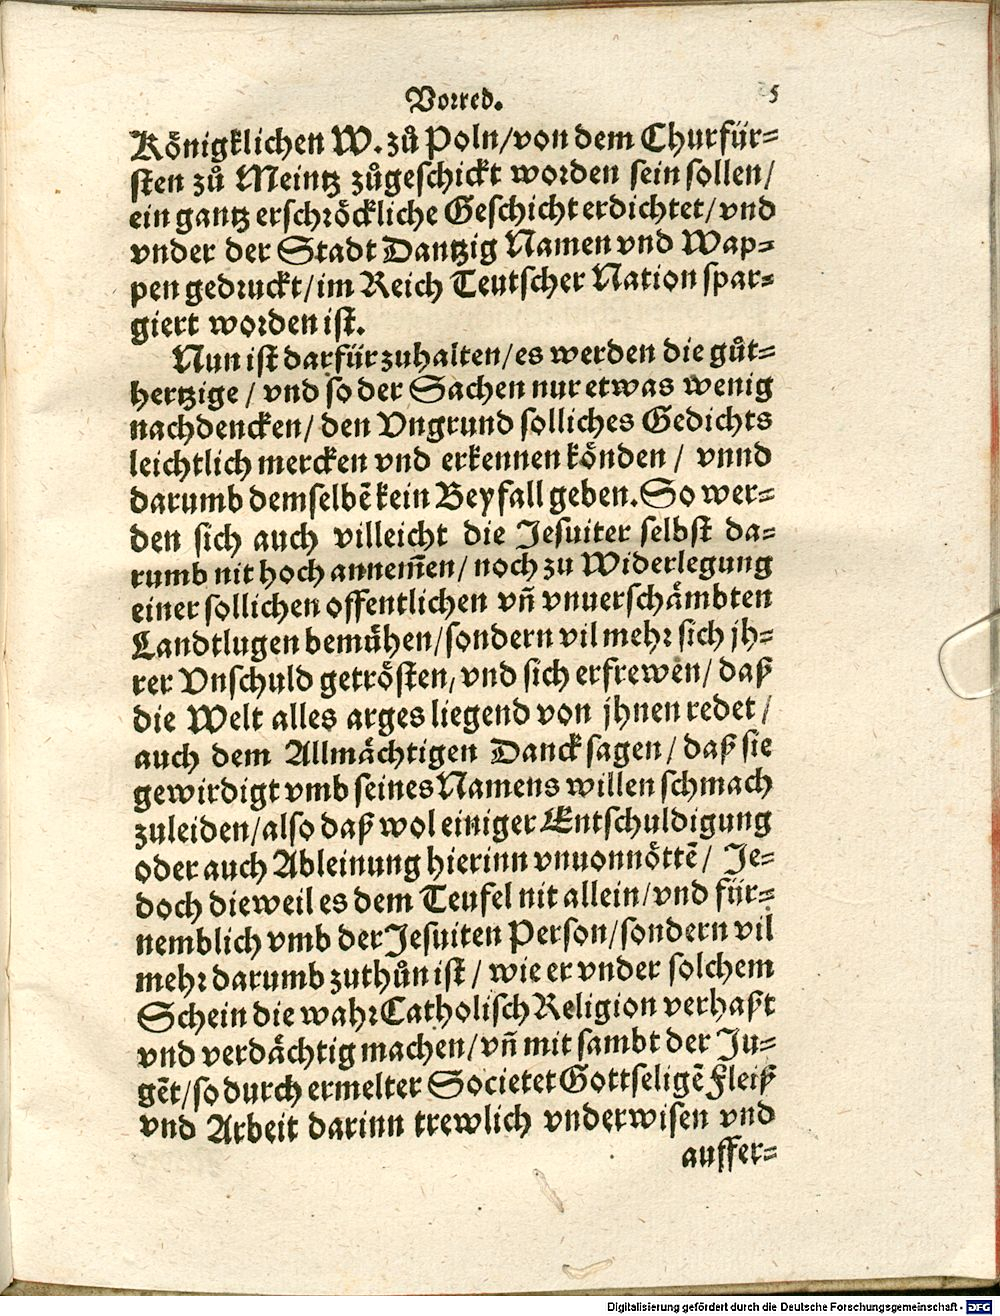 Vorred. 5
Koͤnigklichen W. zuͦ Poln/von dem Churfür⸗
sten zuͦ Meintz zuͦgeschickt worden sein sollen/
ein gantz erschroͤckliche Geschicht erdichtet/vnd
vnder der Stadt Dantzig Namen vnd Wap⸗
pen gedruckt/im Reich Teutscher Nation spar⸗
giert worden ist.
Nun ist darfür zuhalten/es werden die guͦt⸗
hertzige/ vnd so der Sachen nur etwas wenig
nachdencken/ den Vngrund solliches Gedichts
leichtlich mercken vnd erkennen koͤnden/ vnnd
darumb demselbē kein Beyfall geben. So wer⸗
den sich auch villeicht die Jesuiter selbst da⸗
rumb nit hoch annem̄en/ noch zu Widerlegung
einer sollichen offentlichen vn̄ vnuerschaͤmbten
Landtlugen bemuͤhen/sondern vil mehr sich jh⸗
rer Vnschuld getroͤsten, vnd sich erfrewen/ daß
die Welt alles arges liegend von jhnen redet/
auch dem Allmaͤchtigen Danck sagen/ daß sie
gewirdigt vmb seines Namens willen schmach
zuleiden/also daß wol einiger Entschuldigung
oder auch Ableinung hierinn vnuonnoͤttē/ Je⸗
doch dieweil es dem Teufel nit allein/vnd für⸗
nemblich vmb der Jesuiten Person/sondern vil
mehr darumb zuthuͦn ist/ wie er vnder solchem
Schein die wahr Catholisch Religion verhaßt
vnd verdaͤchtig machen/vn̄ mit sambt der Ju⸗
gēt/so durch ermelter Societet Gottseligē Fleiß
vnd Arbeit darinn trewlich vnderwisen vnd
auffer⸗
Digitalisierung gefördert durch die Deutsche Forschungsgemeinschaft - DFG